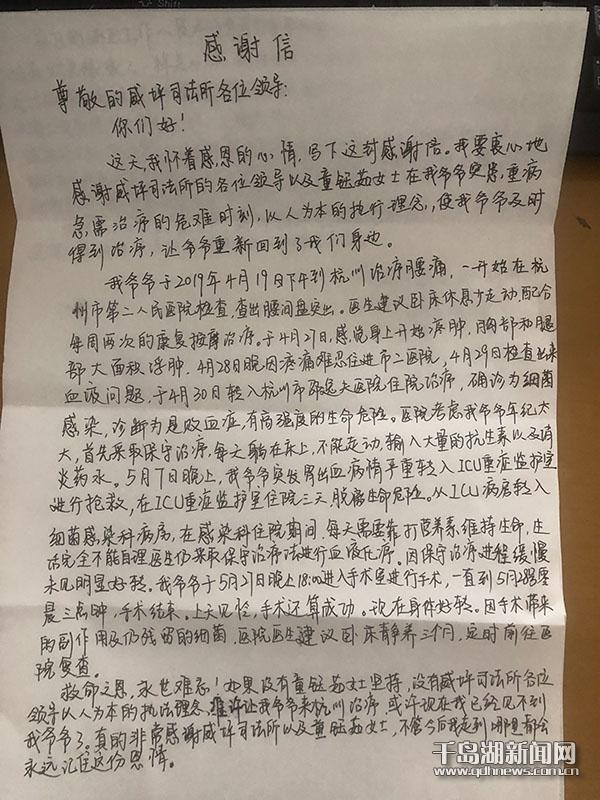 感谢信
尊敬的威坪司法所各位领导:
你们好!
这天,我怀着感恩的心情,写下这封感谢信。我要衷心地
感谢威坪司法所的各位领导以及童钰茹女士在我爷爷突患重病
急需治疗的危难时刻,以人为本的执行理念,使我爷爷及时
得到治疗,让爷爷重新回到了我们身边。
我爷爷于2019年4月19日下午到杭州治疗腰痛,一开始在杭
州市第二人民医院检查,查出腰间盘突出。医生建议卧床休息少走动配合
每周两次的康复按摩治疗。于4月27日,感觉身上开始疼肿,胸部和腿
部大面积浮肿,4月28日晚因疼痛难忍住进市二医院,4月29日检查出来
血液问题,于4月30日转入杭州市邵逸夫医院住院治疗,确诊为细菌
感染,诊断为是败血症,有高强度的生命危险。医院考虑我爷爷年纪太
大,首先采取保守治疗,每天躺在床上,不能走动,输入大量的抗生素以及消
炎药水。5月7日晚上,我爷爷突发胃出血病情严重转入ICU重症监护室
进行抢救,在ICU重症监护室住院三天,脱离生命危险。从ICU病房转入
细菌感染科病房,在感染科住院期间,每天需要靠打营养素维持生命,生
活完全不能自理医生仍采取保守治疗法进行血液化疗。因保守治疗进程缓慢
未见明显好转。我爷爷于5月27日晚上18:00进入手术室进行手术,一直到5月28号零
晨三点钟,手术结束。上天见怜,手术还算成功。现在身体好转。因手术带来
的副作用及仍残留的细菌,医院医生建议卧床静养三个月,定时前往医
院复查。
救命之恩,永世难忘!如果没有童钰茹女士坚持,没有威坪司法所各位
领导以人为本的执法理念,准许让我爷爷来杭州治疗 或许现在我已经见不到
我爷爷了。真的非常感谢威坪司法所以及童钰茹女士,不管今后我走到哪里都会
永远记住这份恩情。
千岛湖新闻网
www.qdhnews.com.cn